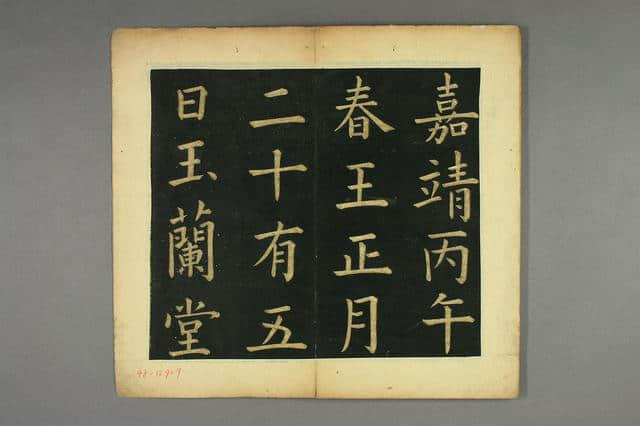 嘉靖丙午
春王正月
二十有五
日玉蘭堂
48-1209